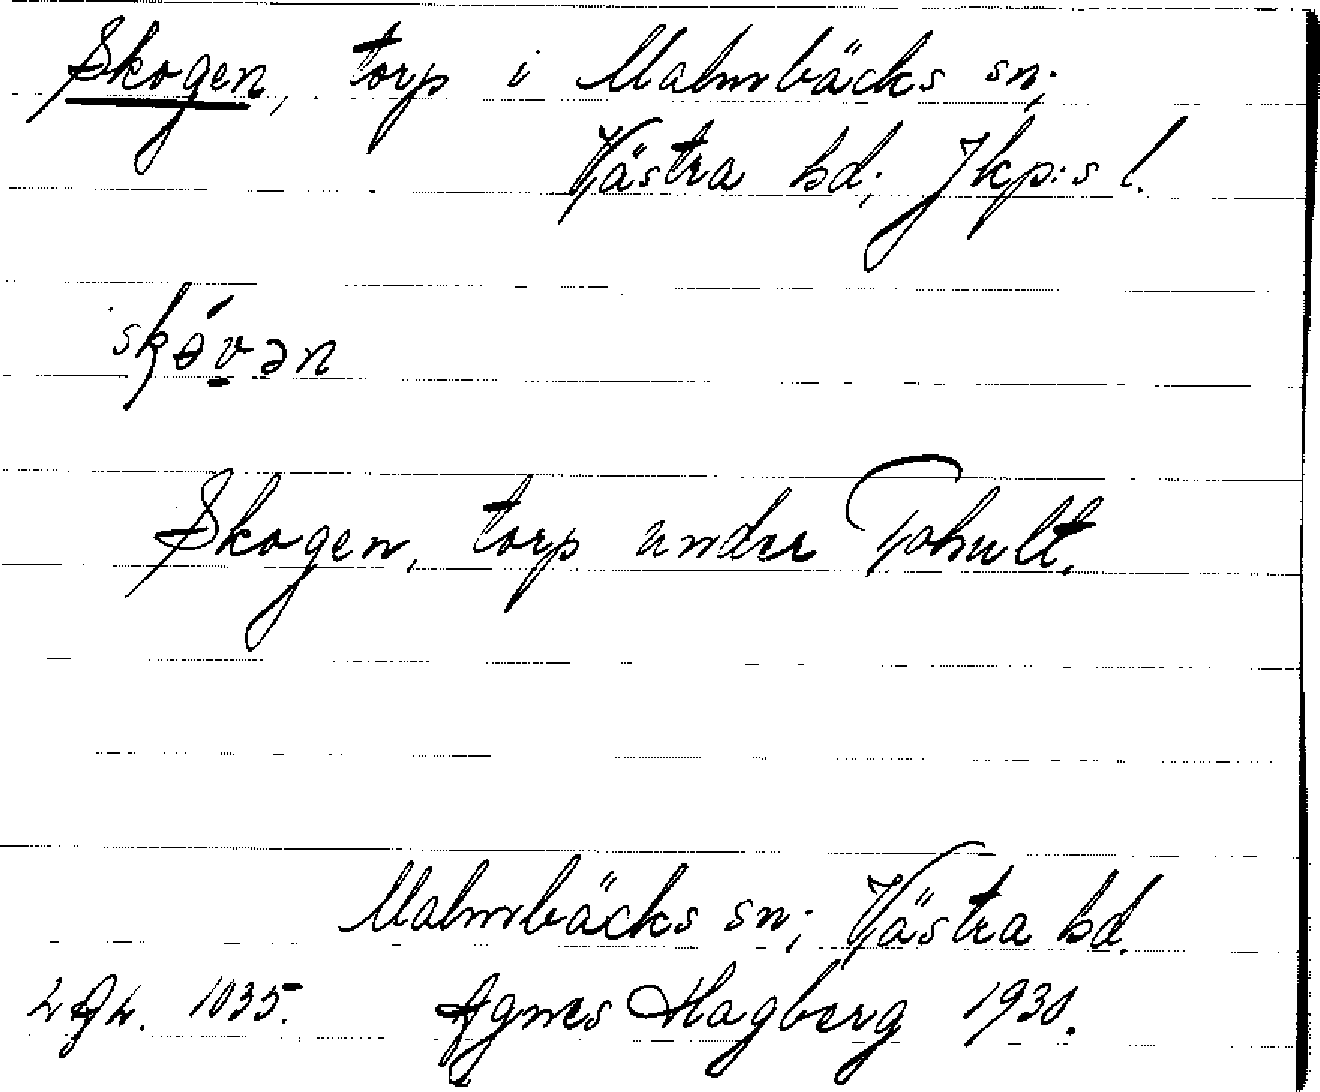 Skogen, torp i Malmbäcks sn;
Västra hd; Jkp:s l.
skövən
Skogen, torp under Tohult.
Malmbäcks sn; Västra hd.
1035. Agnes Hagberg 1930.